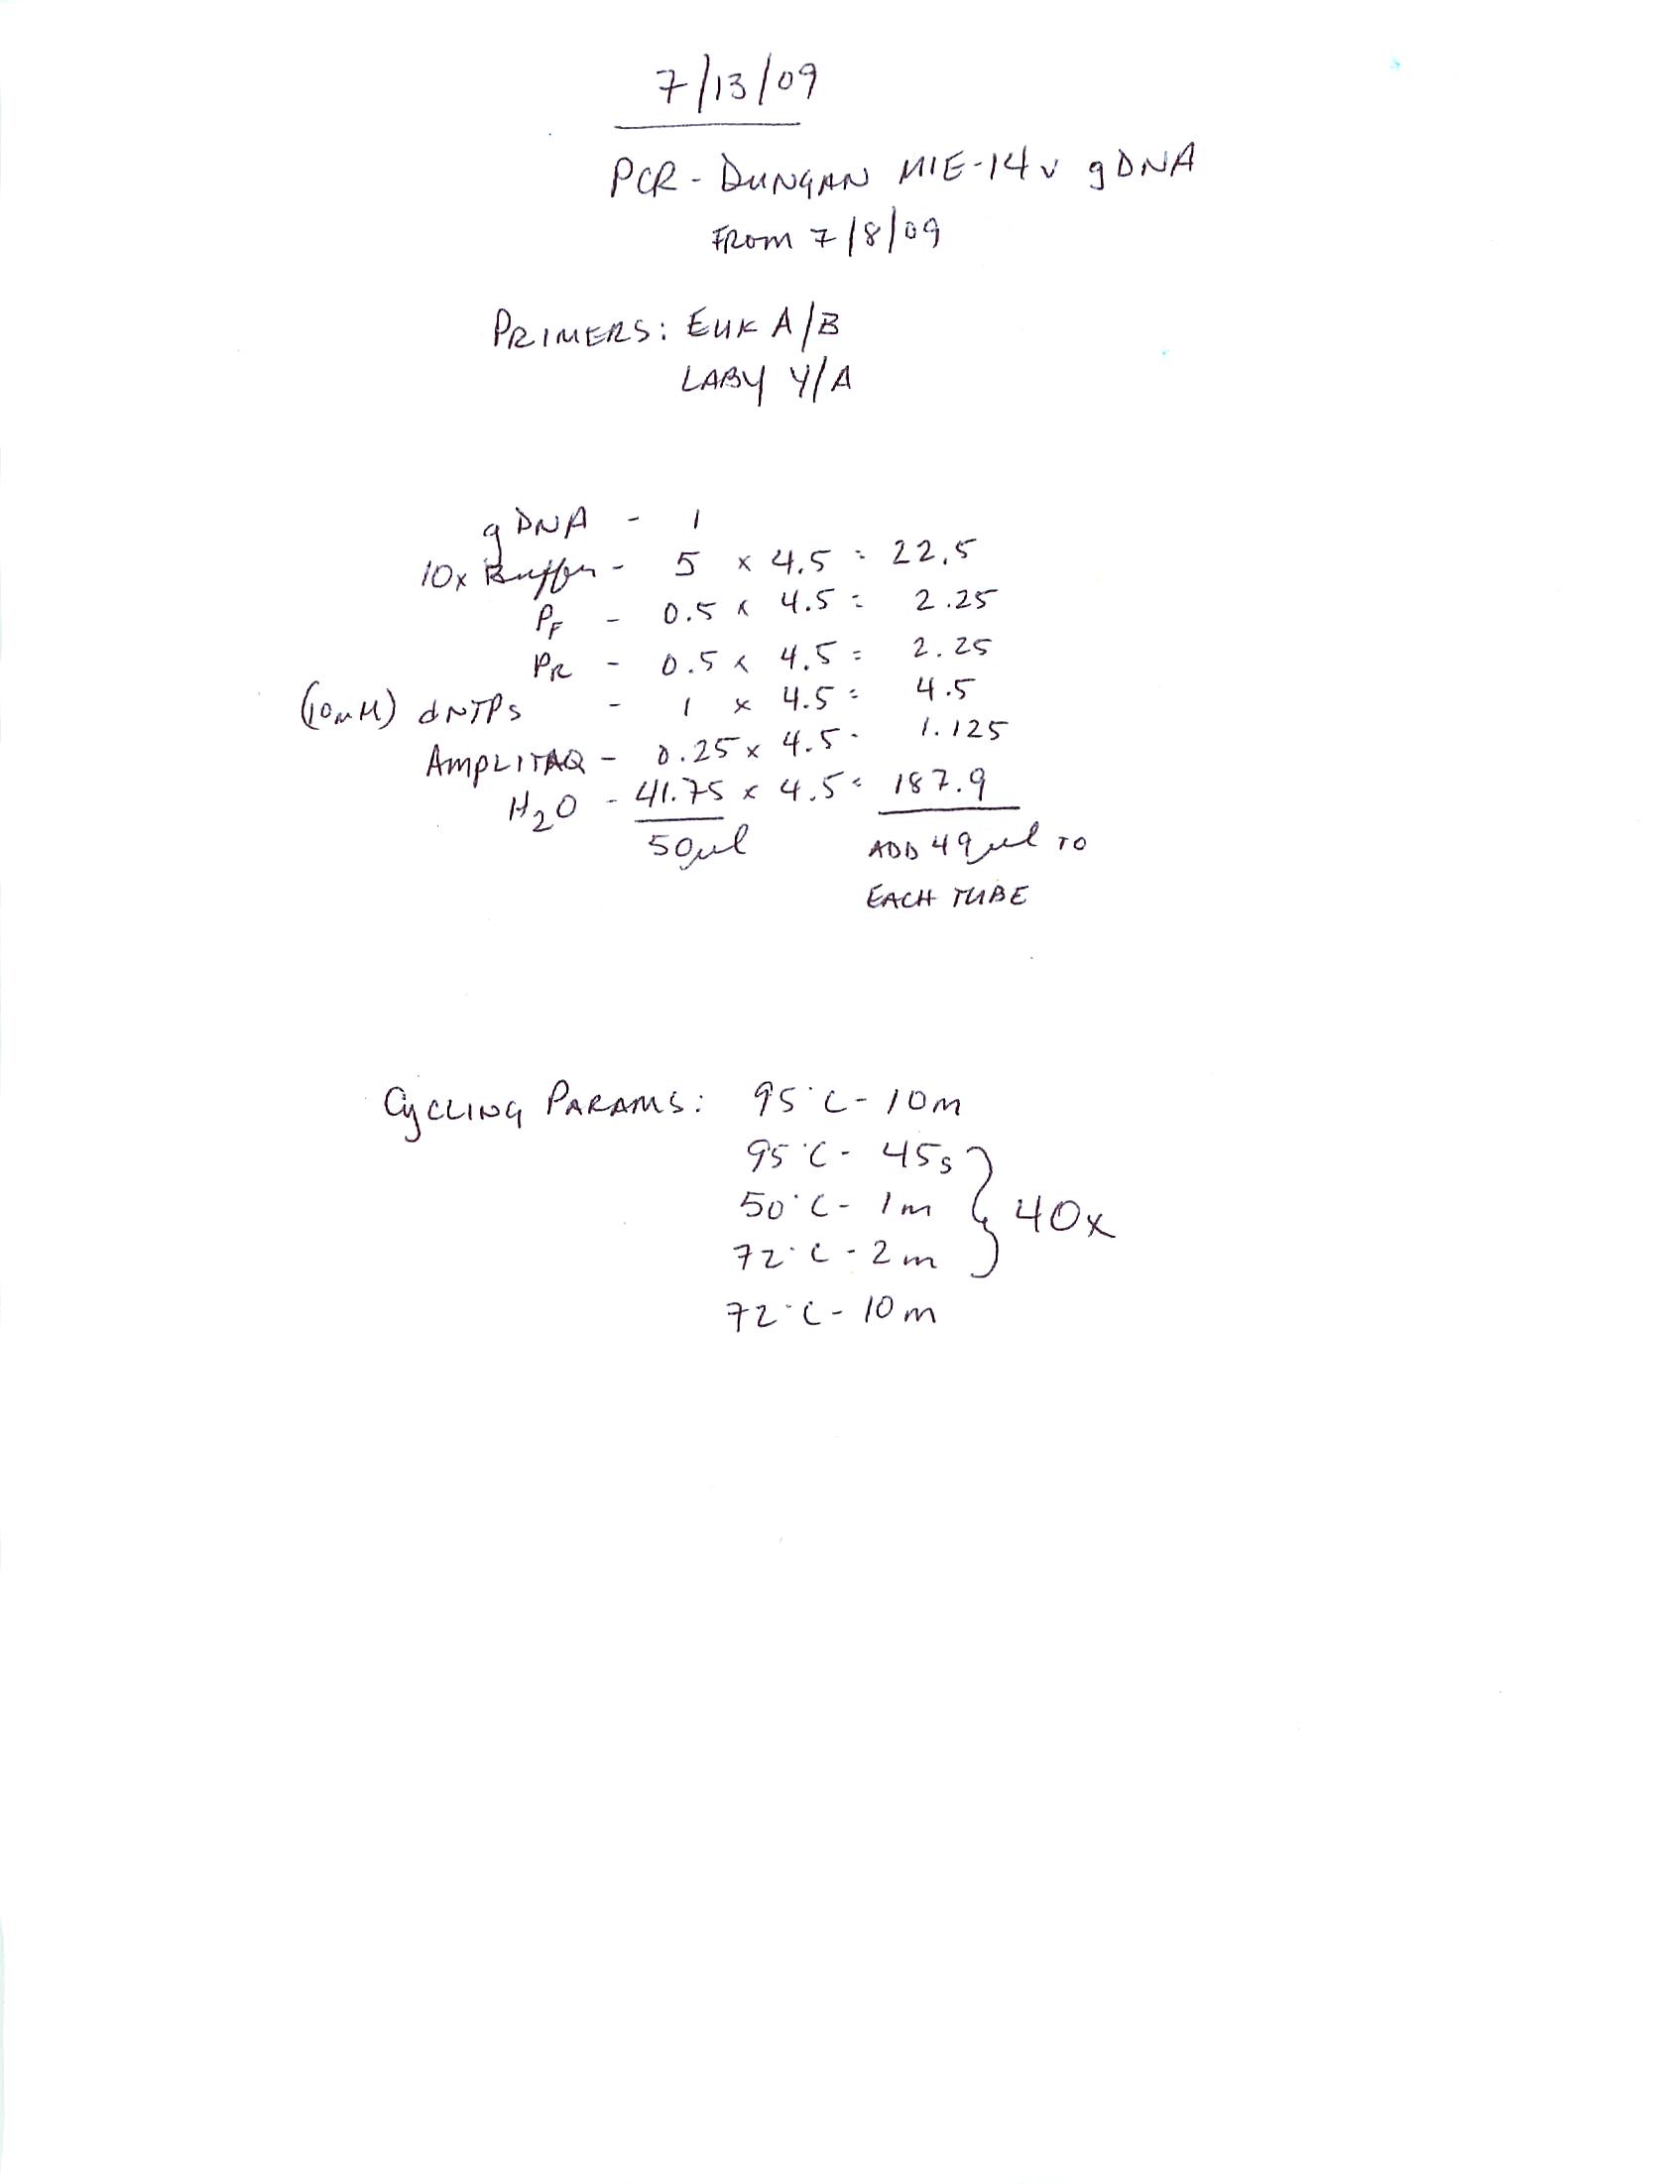 7/13/09
PCR - DUNGAN MIE-14v gDNA
FROM 7/8/09
PRIMERS: EUK A/B
LABY Y/A
gDNA - 1
10x Buffer - 5 x 4.5 = 22.5
PF - 0.5 x 4.5 = 2.25
PR - 0.5 x 4.5 = 2.25
(10mM) dNTPs - 1 x 4.5 = 4.5
AMPLITAQ - 0.25 x 4.5 = 1.125
H2O - 41.75 x 4.5 = 187.9
50µl ADD 49µl TO
EACH TUBE
CYCLING PARAMS: 95°C - 10m
95°C - 45s
50°C - 1m } 40x
72°C - 2m
72°C - 10m